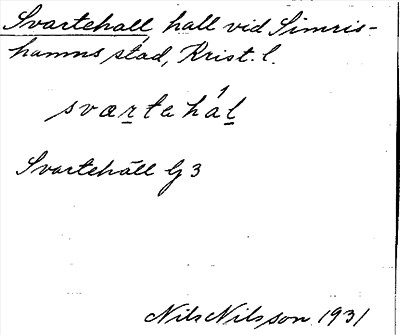 Svartehall, hall vid Simris-
hamns stad, Krist. l.
sværtehál
Svartehäll G 3
Nils Nilsson 1931